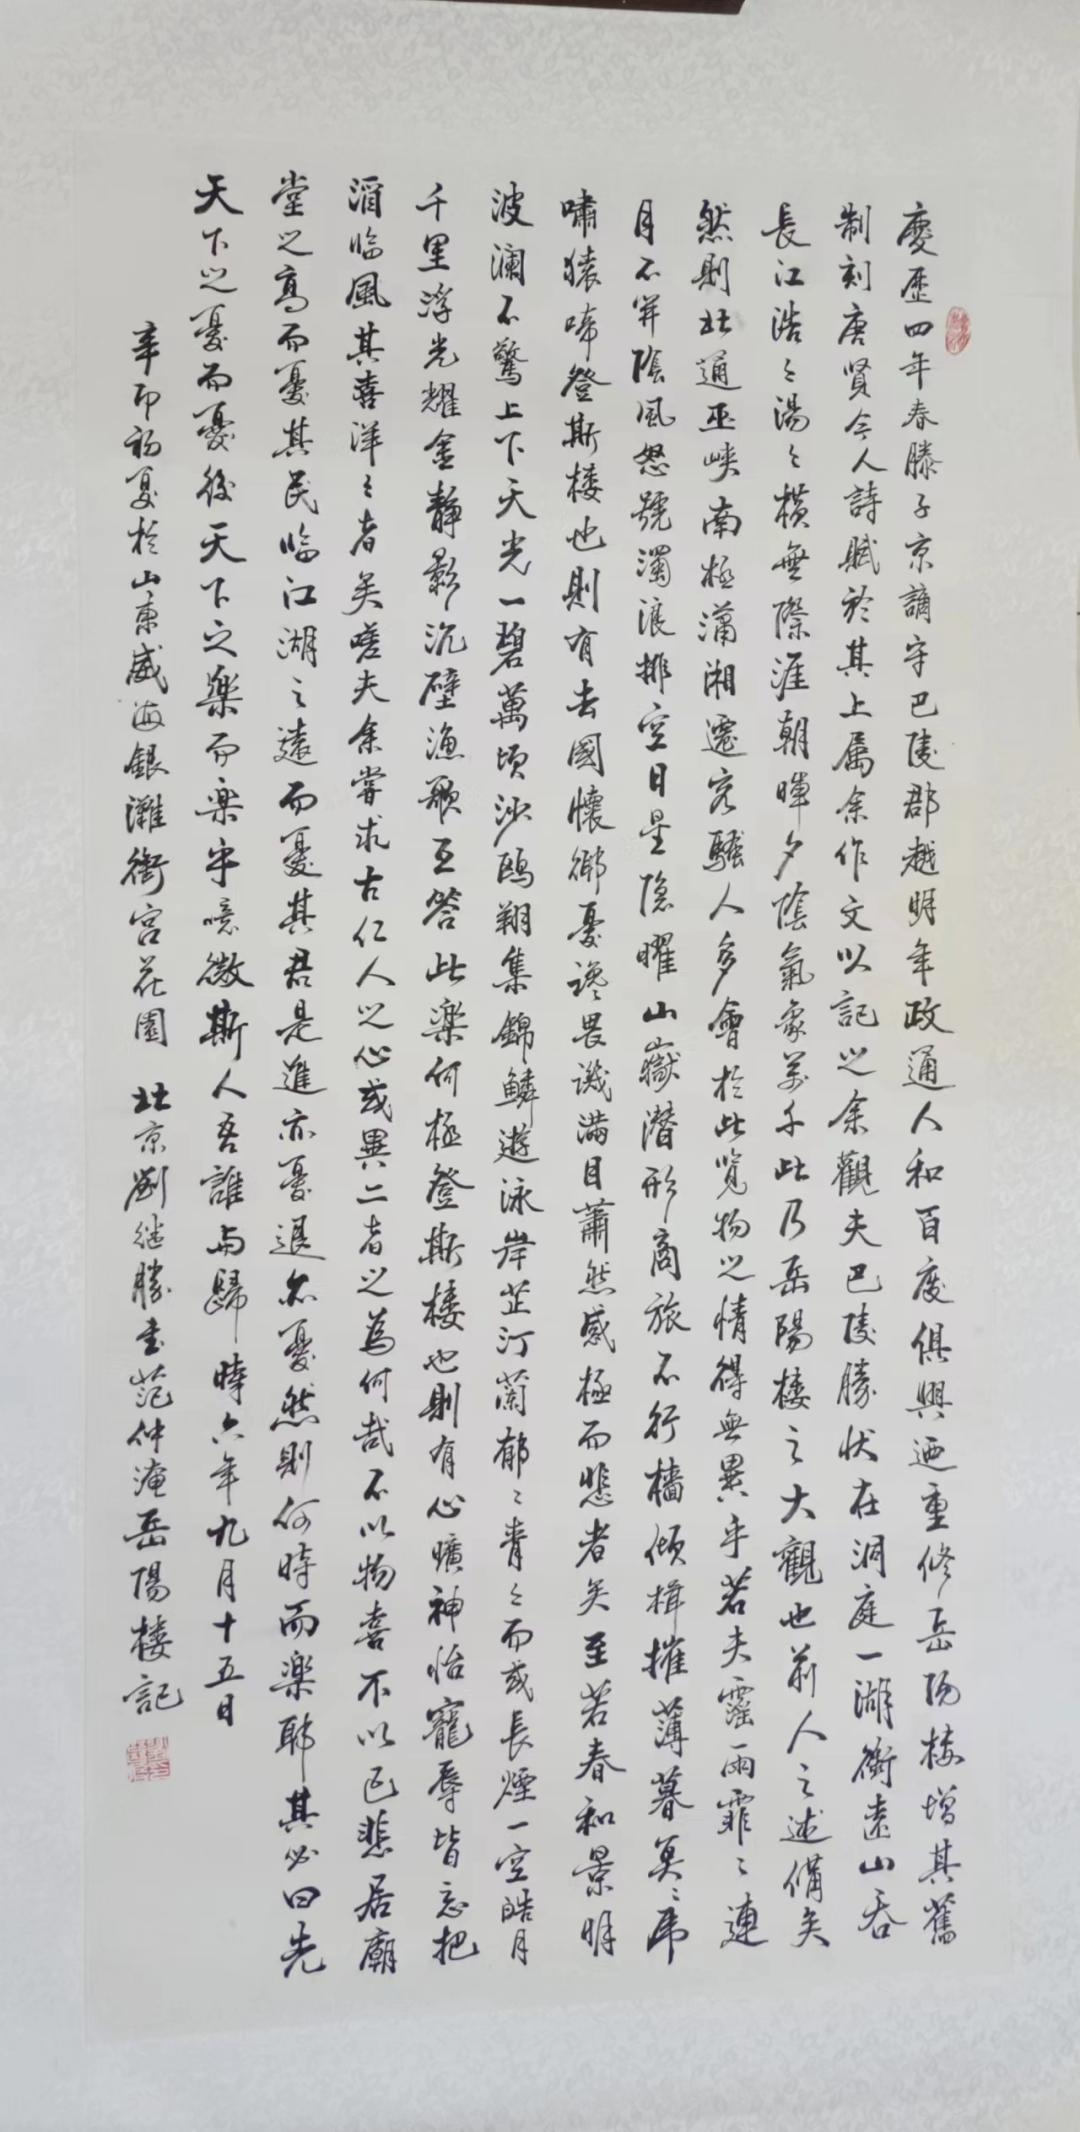 慶歷四年春滕子京謫守巴陵郡越明年政通人和百度俱興迺重修岳陽楼增其舊
制刻唐賢今人詩賦於其上属余作文以記之余觀夫巴陵勝状在洞庭一湖銜遠山吞
長江浩々湯々橫無際涯朝暉夕陰氣象萬千此乃岳陽楼之大觀也前人之述備矣
然則北通巫峽南極瀟湘遷客騷人多會於此览物之情得無異乎若夫霪雨霏々連
月不開陰風怒號濁浪排空日星隐曜山嶽潜形商旅不行檣傾楫摧薄暮冥々虎
嘯猿啼登斯楼也則有去國懷鄉憂讒畏譏滿目蕭然感極而悲者矣至若春和景明
波瀾不驚上下天光一碧萬頃沙鷗翔集錦鱗遊泳岸芷汀蘭郁々青々而或長煙一空皓月
千里浮光耀金静影沉璧漁歌互答此楽何極登斯楼也則有心曠神怡寵辱皆忘把
酒临風其喜洋々者矣嗟夫余嘗求古仁人之心或異二者之為何哉不以物喜不以己悲居廟
堂之高而憂其民临江湖之遠而憂其君是進亦憂退亦憂然則何時而楽耶其必曰先
天下之憂而憂後天下之楽而楽乎噫微斯人吾誰与歸 時六年九月十五日
辛卯初夏於山東威海銀灘衛宮花園 北京劉継勝書范仲淹岳陽楼記